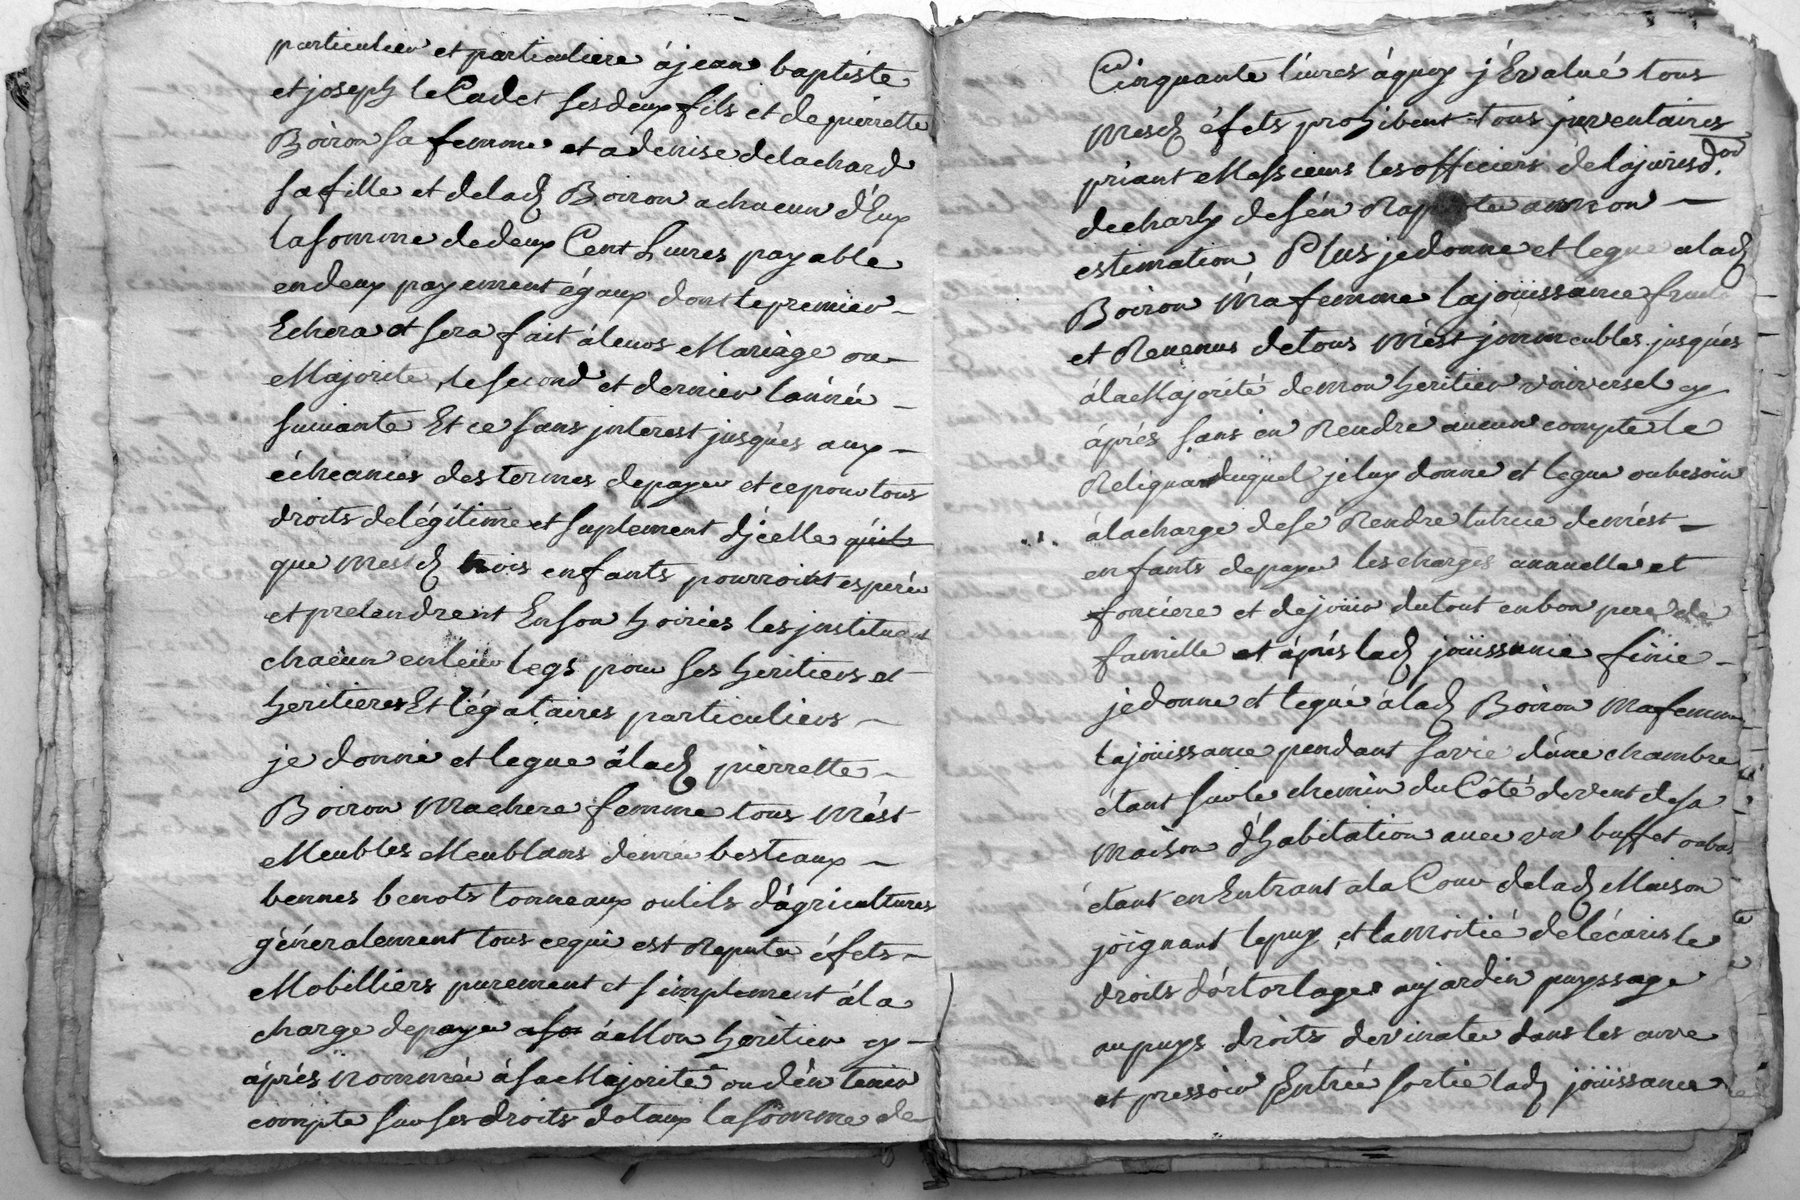 particulier et particuliere à jean baptiste
et joseph le Cadet ses deux fils et de pierrette
Boiron sa femme et a denise delachard
sa fille et de lad Boiron a chacun d'Eux
la somme de deux Cent Livres payable
en deux payement égaux dont le premier
Echera et sera fait à leurs Mariage ou
Majorité, le second et dernier l'année
suivante Et ce sans jnterest jusques aux
écheances des termes de payer et ce pour tous
droits de légitime et suplement djcelle quil
que mesd trois enfants pourroint esperer
et pretendrent En son hoiries les jnstituent
chacun en leur legs pour ses heritiers et
heritieres Et légataires particuliers
je donne et legue à lad pierrette
Boiron Ma chere femme tous mést
Meubles Meublans denrée besteaux
bennes benots tonneaux outils d'agricultures
généralement tous ce qui est Reputer éfets
Mobilliers purement et simplement à la
charge de payer à Mon heritier cy
áprés nommée à sa Majorité ou d'én tenir
compte sur ses droits dotaux la somme de
Cinquante livres à quoy j'Evalué tous
Mesd éfets prohibent tous jnventaires
priant Messieurs les officiers de la jurisdon
de charly de s'én Rapporter a mon
estimation Plus je donne et legue a lad
Boiron Ma femme la joüissance fruits
et Revenus de tous mést jmmeubles jusqués
à la Majorité de mon heritier universel cy
áprés sans én Rendre aucun compte le
Reliqua duquel je luy donne et legue au besoin
à la charge de se Rendre tutrice de mést
enfants de payer les charges annuelle et
fonciere et de joüir du tout en bon pere de
famille et áprés lad joüissance finie
je donne et legue à lad Boiron Ma femme
la joüissance pendant sa vie d'une chambre
étant sur le chemin du Côté de vent de sa
Maison d'habitation avec un buffet
étant en Entrant a la Cour de lad Maison
joignant le puy, et la Moitié de l'écurie le
droits d'ortolage au jardin puyssage
au puys droits de dans les cuve
et pressoir Entrée sortie lad joüissance